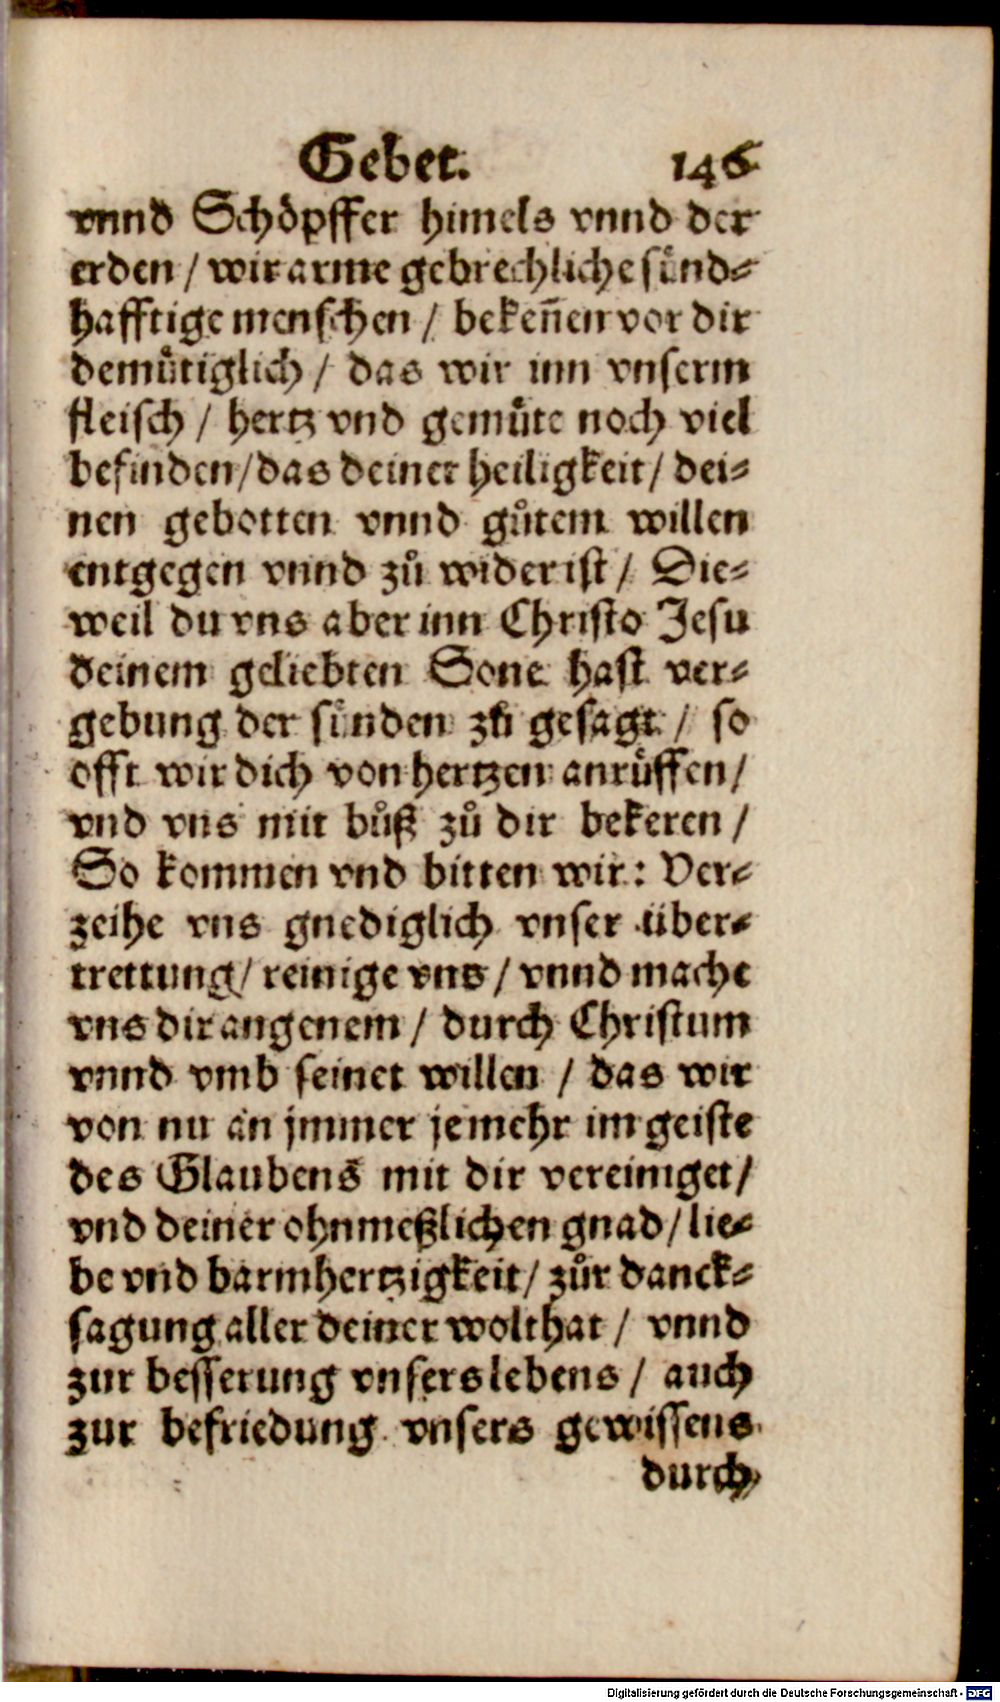 Gebet. 146
vnnd Schöpffer himels vnnd der
erden / wir arme gebrechliche sünd-
hafftige menschen / bekeñen vor dir
demuͤtiglich / das wir inn vnserm
fleisch / hertz vnd gemuͤte noch viel
befinden / das deiner heiligkeit / dei-
nen gebotten vnnd guͦtem willen
entgegen vnnd zuͦ wider ist / Die-
weil du vns aber inn Christo Jesu
deinem geliebten Sone hast ver-
gebung der sünden zuͦ gesagt / so
offt wir dich von hertzen anruͤffen /
vnd vns mit buͦß zuͦ dir bekeren /
So kommen vnd bitten wir : Ver-
zeihe vns gnediglich vnser über-
trettung / reinige vns / vnnd mache
vns dir angenem / durch Christum
vnnd vmb seinet willen / das wir
von nu an jmmer je mehr im geiste
des Glaubens mit dir vereiniget /
vnd deiner ohnmeßlichen gnad / lie-
be vnd barmhertzigkeit / zuͦr danck-
sagung aller deiner wolthat / vnnd
zur besserung vnsers lebens / auch
zur befriedung vnsers gewissens
durch
Digitalisierung gefördert durch die Deutsche Forschungsgemeinschaft - DFG